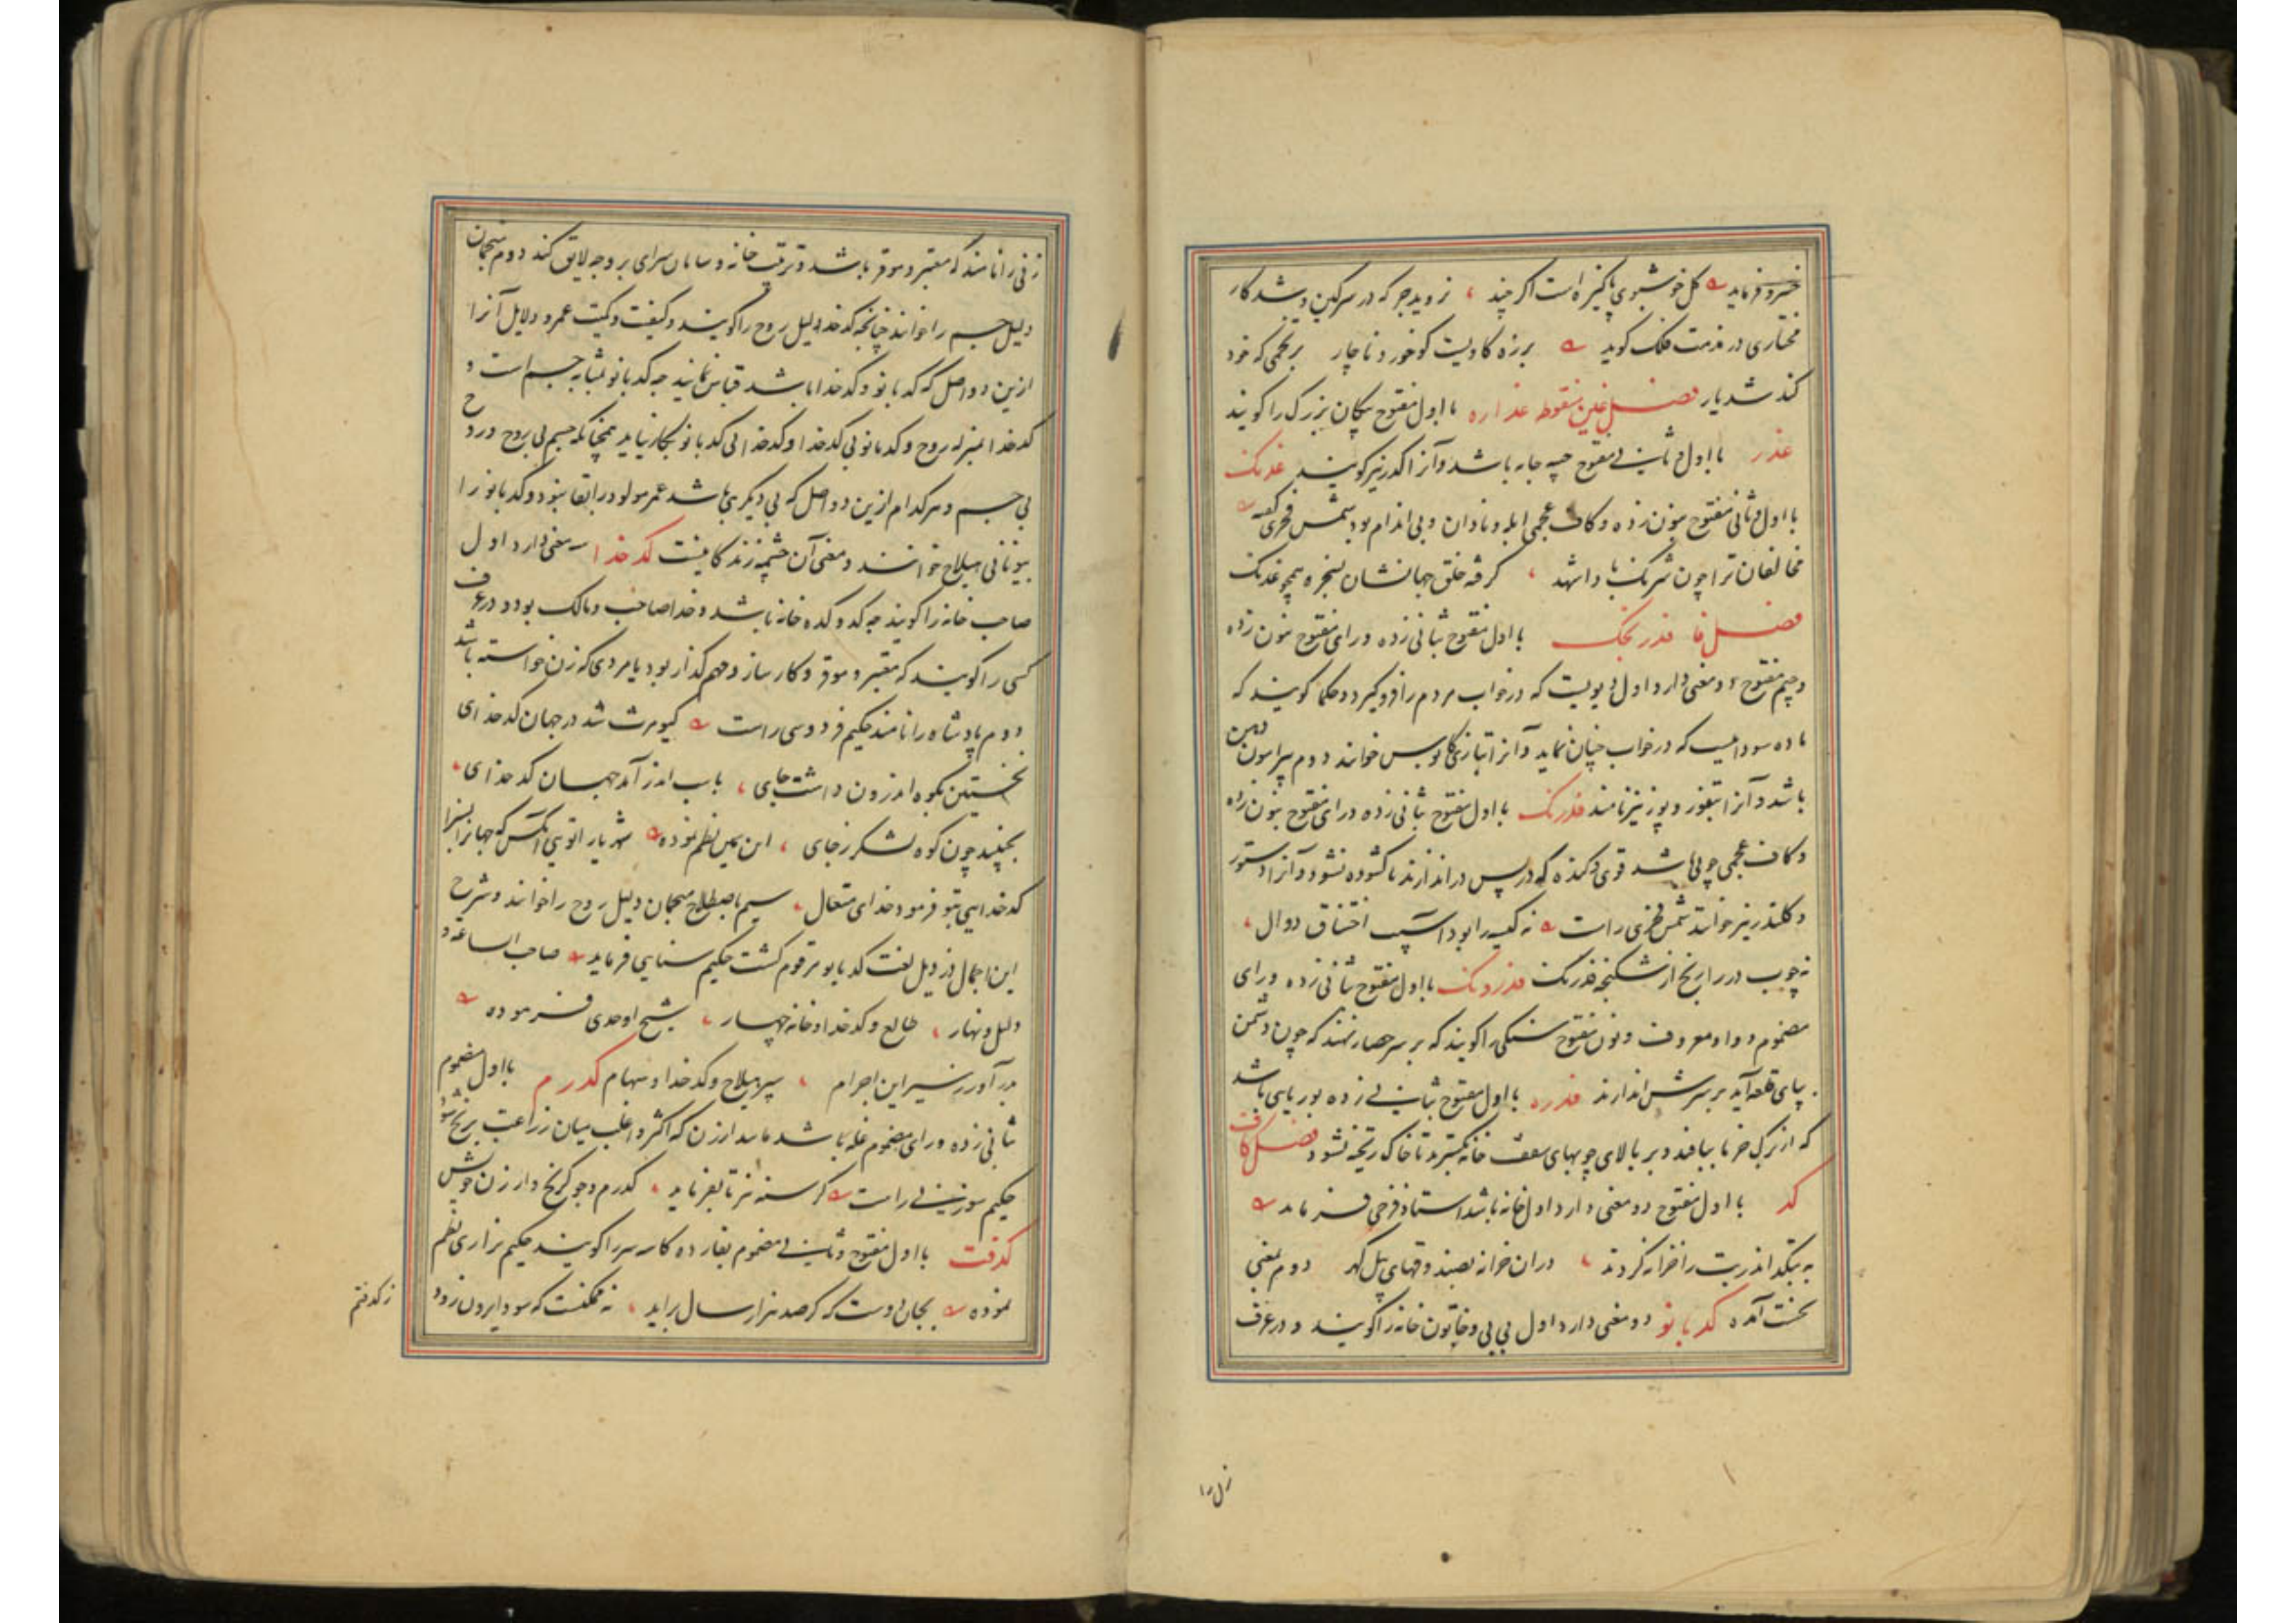 خسرو فرماید گل خوشبوی پاکیزه است اگر چند ، نروید جز که در سرکین و شدکار
مختاری در مذمت فلک گوید برزه گاویست کو خورد ناچار بر تخمی که خود
کند شدیار فصل غین منقوطه غداره با اول مفتوح پیکان بزرگ را گویند
غدر با اول و ثانی مفتوح جبه جامه باشد و آنرا کدر نیز گویند غدنک
با اول و ثانی مفتوح بنون زده و کاف عجمی ابله و نادان و بی اندام بود شمس فخری گفته
مخالفان ترا چون شرنک باد شهد ، گرفته خلق جهانشان بسخره همچو غدنک
فصل فا فدرنجک با اول مفتوح بثانی زده و رای مفتوح بنون زده
و جیم مفتوح دو معنی دارد اول دیویست که در خواب مردم را فرو گیرد و حکما گویند که
ماده سوداست که در خواب چنان نماید و آنرا بتازی کابوس خوانند دوم پیرامون دهن
باشد و آنرا بتفوز و پوز نیز نامند فدرنک با اول مفتوح بثانی زده و رای مفتوح بنون زده
و کاف عجمی چوبی باشد قوی و گنده که در پس در اندازند تا گشوده نشود و آنرا دستور
و کلندر نیز خوانند شمس فخری راست نه کیسه را بود آسیب اختناق دوال ،
نه چوب در را رنج از شکنجه فدرنک فدرونک با اول مفتوح بثانی زده و رای
مضموم و واو معروف و نون مفتوح سنگی را گویند که بر سر حصار نهند که چون دشمن
بپای قلعه آید بر سرش اندازند فدره با اول مفتوح بثانی زده بوریایی باشد
که از برک خرما ببافند و بر بالای چوبهای سقف خانه بگسترند تا خاک ریخته نشود فصل کاف
کد با اول مفتوح دو معنی دارد اول خانه باشد استاد فرخی فرماید
به بتکده اندر بت را خزانه کردند ، در آن خزانه بصندوقهای پیل گهر دوم بمعنی
نخست آمده کدبانو دو معنی دارد اول بی بی و خاتون خانه را گویند و در عرف
زنی را
زنی را نامند که معتبر و موقر باشد و ترتیب خانه و سامان سرای بر وجه لایق کند دوم منجمان
دلیل جسم را خوانند چنانچه کدخدا دلیل روح را گویند و کیفیت و کمیت عمر و دلایل آنرا
ازین دو اصل که کدبانو و کدخدا باشد قیاس نمایند چه کدبانو بمثابه جسم است و
کدخدا بمنزله روح و کدبانو بی کدخدا و کدخدا بی کدبانو بکار نیاید همچنانکه جسم بی روح و روح
بی جسم و هر کدام ازین دو اصل که بی دیگری باشد عمر مولود را بقا نبود و کدبانو را
بیونانی هیلاج خوانند و معنی آن چشمه زندگانیست کدخدا سه معنی دارد اول
صاحب خانه را گویند چه کد و کده خانه باشد و خدا صاحب و مالک بود و در عرف
کسی را گویند که معتبر و موقر و کارساز و مهم گذار بود یا مردی که زن خواسته باشد
دوم پادشاه را نامند حکیم فردوسی راست کیومرث شد در جهان کدخدای
نخستین بکوه اندرون داشت جای ، بباب اندر آمد جهان کدخدای ،
بجنبید چون کوه لشکر ز جای ، ابن یمین نظم نموده شهریارا توئی آنکس که جهانرا بسزا
کدخدایی بتو فرمود خدای متعال ، سیم باصطلاح منجمان دلیل روح را خوانند و شرح
این اجمال در ذیل لغت کدبانو مرقوم گشت حکیم سنایی فرماید صاحب الساعة و
دلیل و نهار ، طالع و کدخدا و خانه چهار ، شیخ اوحدی فرموده
بدر آورد سیر این اجرام ، سیر هیلاج و کدخدا و سهام کدرم با اول مضموم
بثانی زده و رای مضموم غله باشد مانند ارزن که اکثر و اغلب میان زراعت برنج شود
حکیم سوزنی راست گرسنه نیز تا بفرماید ، کدرم و جو کرنج و ارزن خویش
کدفت با اول مفتوح و ثانی مضموم بفا زده کاسه سر را گویند حکیم نزاری نظم
نموده بجان دوست که گر صد هزار سال برآید ، نه ممکنست که سودا برون رود
ز کدفتم